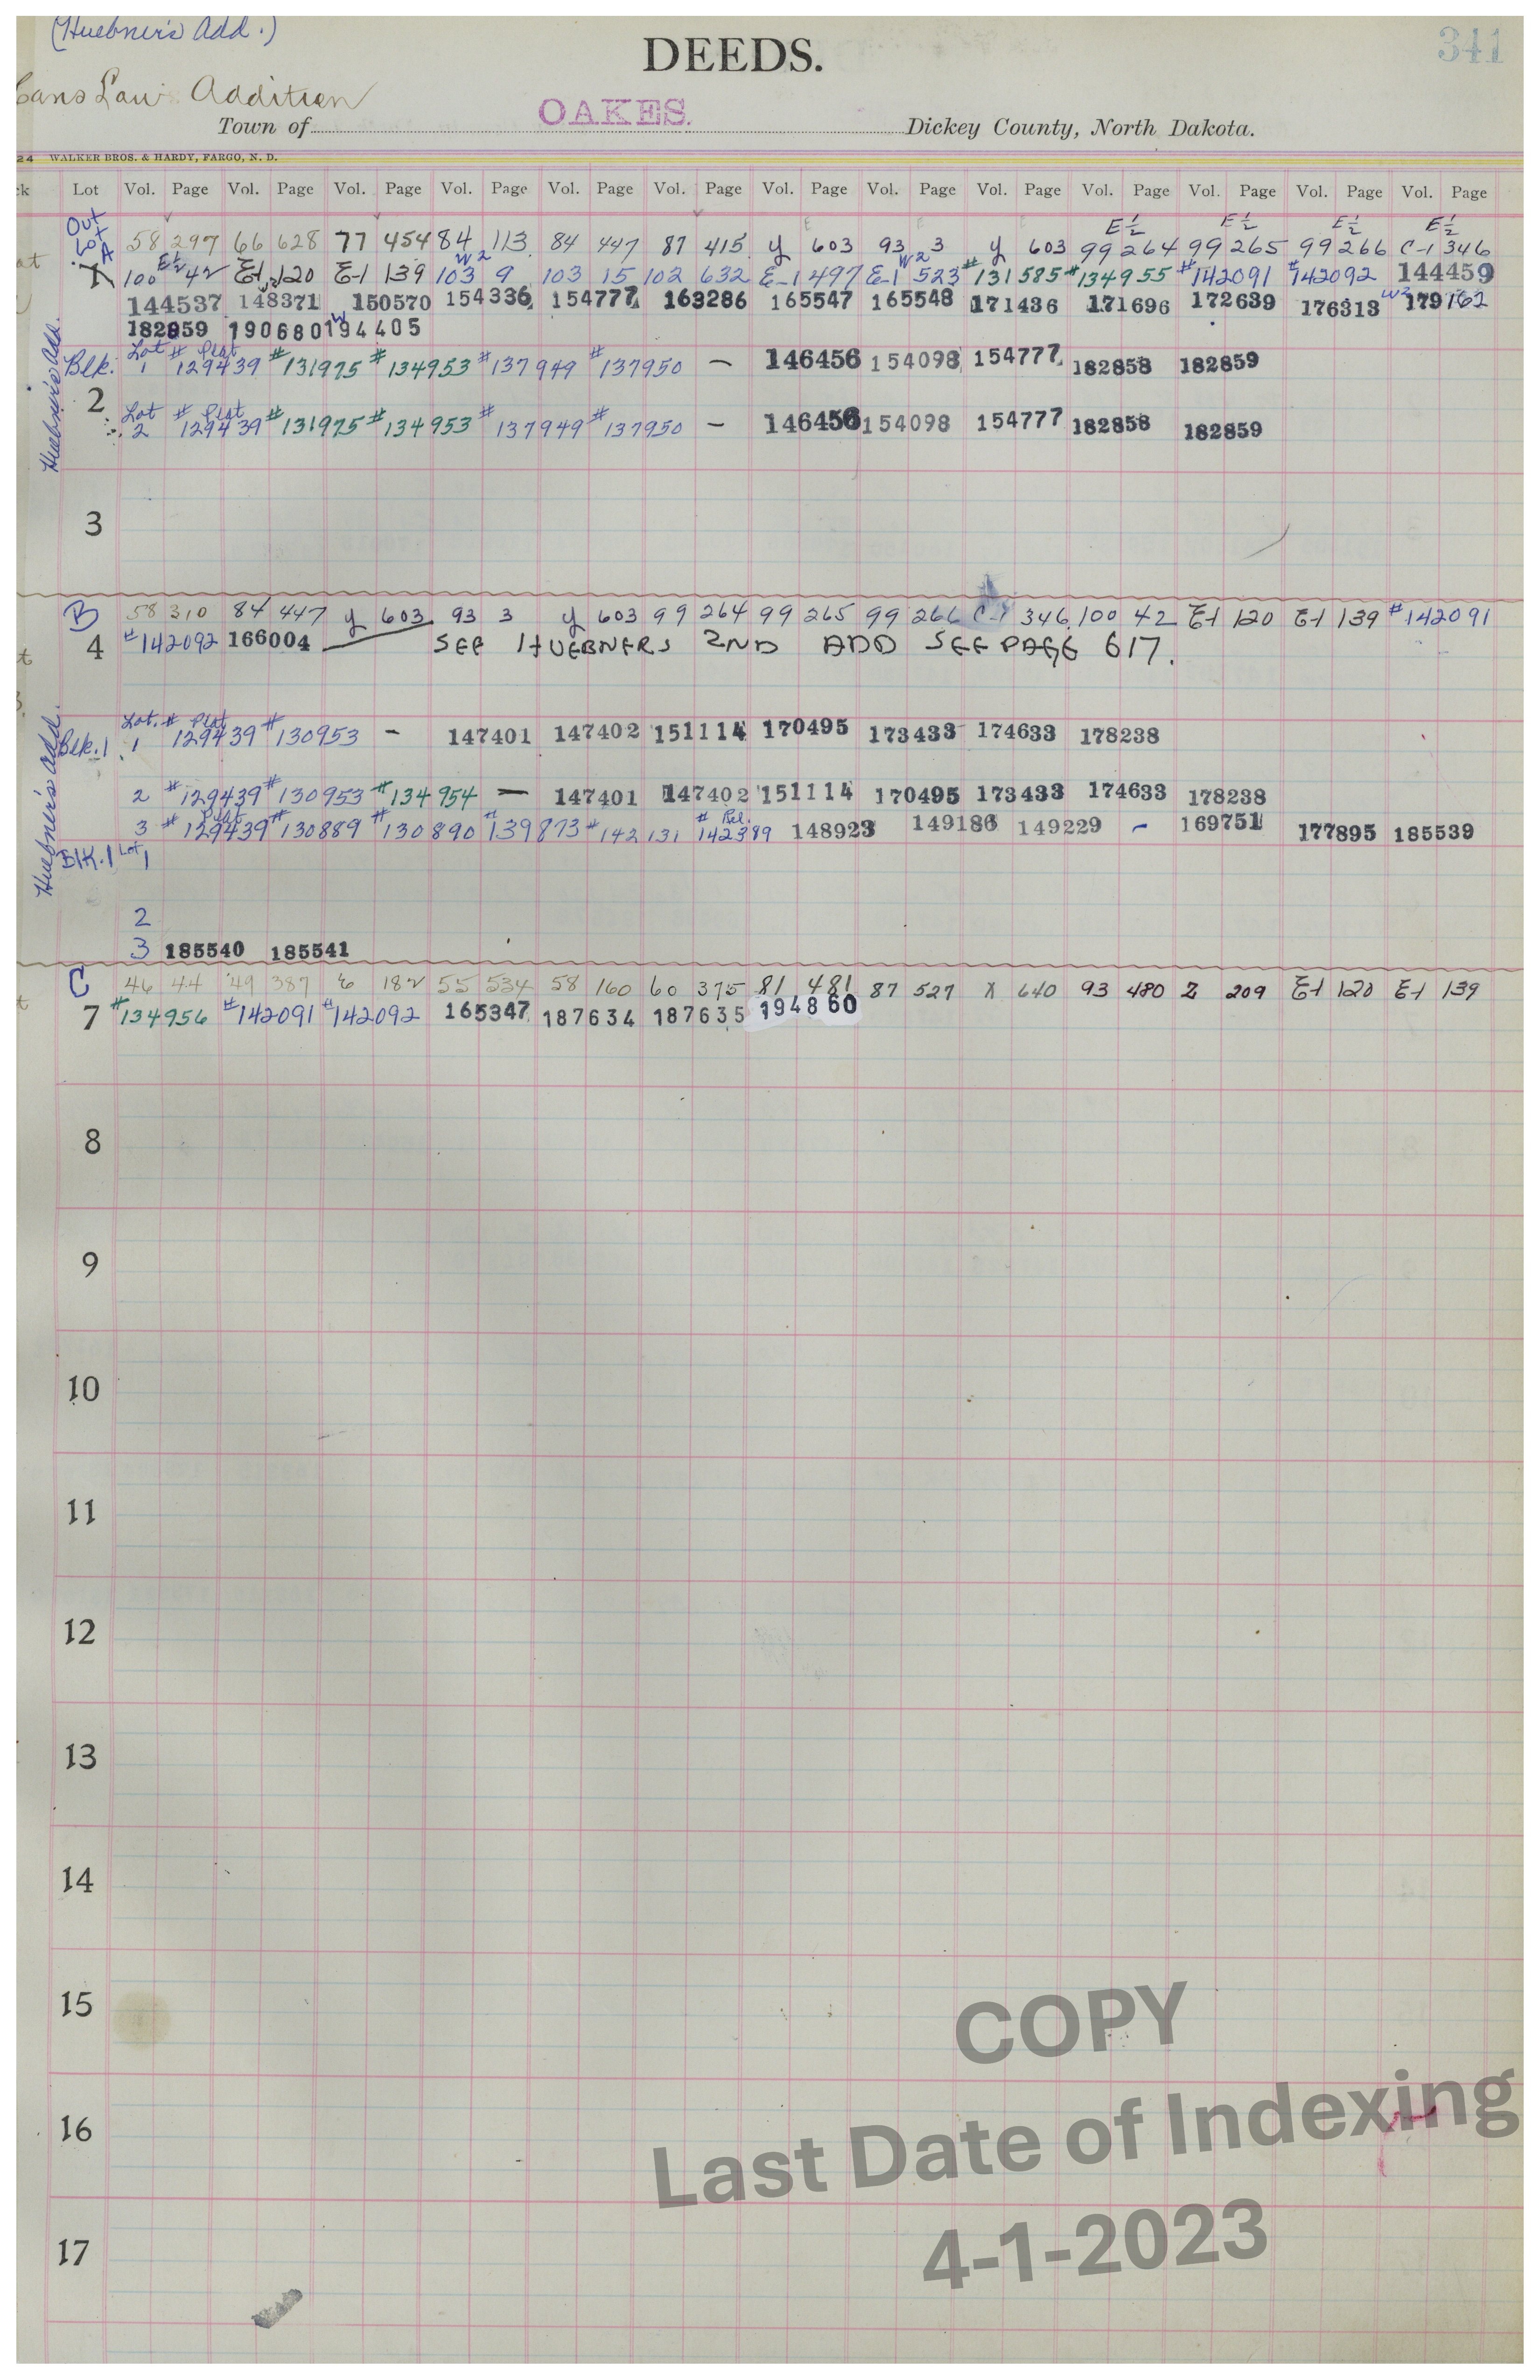 (Huebner's Add.)
DEEDS.
341
Addition
Town of OAKES. Dickey County, North Dakota.
24 WALKER BROS. & HARDY, FARGO, N. D.
ck Lot Vol. Page Vol. Page Vol. Page Vol. Page Vol. Page Vol. Page Vol. Page Vol. Page Vol. Page Vol. Page Vol. Page Vol. Page Vol. Page
E½ E½ E½ E½
Out Lot A 58 297 66 628 77 454 84 113 84 447 87 415 y 603 93 3 y 603 99 264 99 265 99 266 C-1 346
E½ W2 W2
100 42 E-1 120 E-1 139 103 9 103 15 102 632 E-1 497 E-1 523 #131585 #134955 #142091 #142092 144459
144537 148371 150570 154336 154777 163286 165547 165548 171436 171696 172639 176313 W2 179162
182859 190680 W 194405
Huebner's Add.
Blk. 2 Lot 1 # Plat 129439 #131975 #134953 #137949 #137950 — 146456 154098 154777 182858 182859
Lot 2 # Plat 129439 #131975 #134953 #137949 #137950 — 146456 154098 154777 182858 182859
3
B 58 310 84 447 y 603 93 3 y 603 99 264 99 265 99 266 C-1 346 100 42 E-1 120 E-1 139 #142091
4 #142092 166004 SEE HUEBNERS 2ND ADD SEE PAGE 617.
Huebner's Add.
Blk. 1 Lot 1 # Plat 129439 #130953 - 147401 147402 151114 170495 173433 174633 178238
2 #129439 #130953 #134954 — 147401 147402 151114 170495 173433 174633 178238
3 # Plat 129439 #130889 #130890 #139873 #142131 # Rel. 142389 148923 149186 149229 - 169751 177895 185539
Huebner's Add.
Blk. 1 Lot 1
2
3 185540 185541
C 46 44 49 387 182 55 534 58 160 60 375 81 481 87 527 X 640 93 480 Z 209 E-1 120 E-1 139
7 #134956 #142091 #142092 165347 187634 187635 194860
8
9
10
11
12
13
14
15
16
17
COPY
Last Date of Indexing
4-1-2023